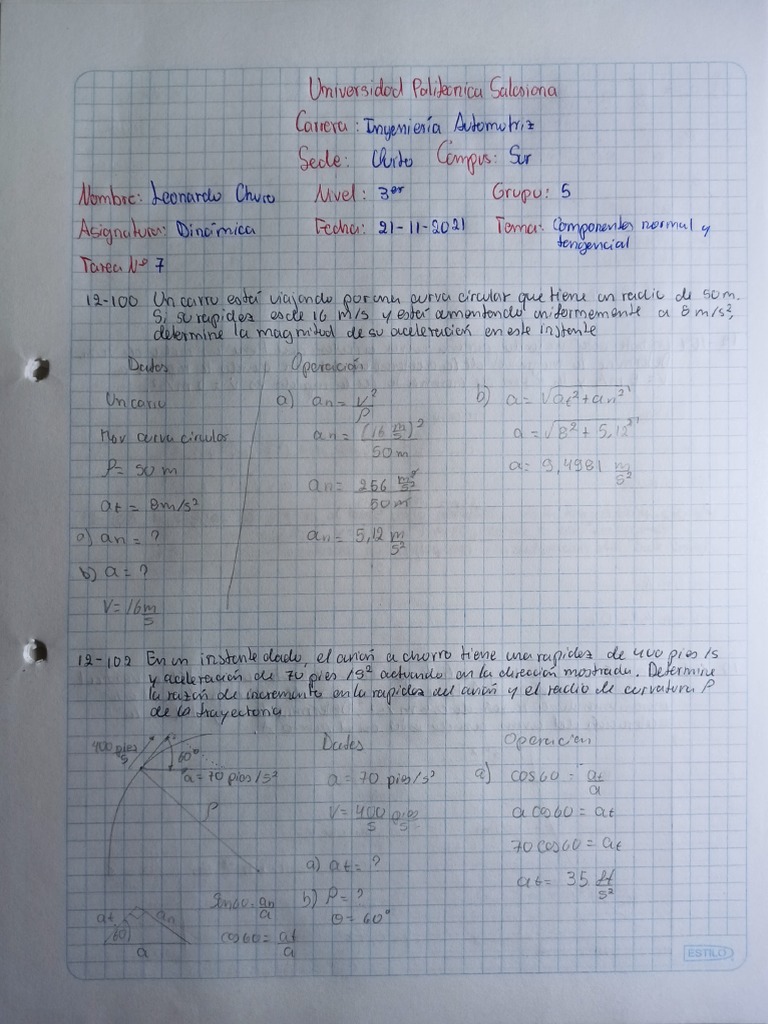 Universidad Politecnica Salesiana
Carrera: Ingeniería Automotriz
Sede: Quito Campus: Sur
Nombre: Leonardo Nivel: 3er Grupo: 5
Asignatura: Dinámica Fecha: 21-11-2021 Tema: Componentes normal y tangencial
Tarea Nº 7
12-100 Un carro está viajando por una curva circular que tiene un radio de 50m.
Si su rapidez es de 16 m/s y está aumentando uniformemente a 8 m/s²,
determine la magnitud de su aceleración en este instante
Datos Operación
Un carro
Mov curva circular
ρ = 50 m
at = 8m/s²
a) an = ?
b) a = ?
V = 16 m/s
a) an = v²/ρ
an = (16 m/s)²/50m
an = 256 m²/s²/50m
an = 5,12 m/s²
b) a = √at² + an²
a = √8² + 5,12²
a = 9,4981 m/s²
12-102 En un instante dado, el avión a chorro tiene una rapidez de 400 pies/s
y aceleración de 70 pies/s² actuando en la dirección mostrada. Determine
la razón de incremento en la rapidez del avión y el radio de curvatura ρ
de la trayectoria
400 pies/s
60°
a = 70 pies/s²
ρ
at an
60
a
Sen60 = an/a
cos60 = at/a
Datos
a = 70 pies/s²
V = 400 pies/s
a) at = ?
b) ρ = ?
θ = 60°
Operacion
a) cos60 = at/a
a cos60 = at
70 cos60 = at
at = 35 ft/s²
ESTILO